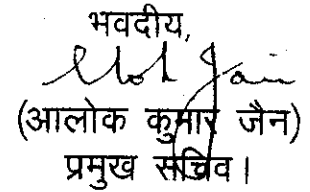 भवदीय,
Alok Jain
(आलोक कुमार जैन)
प्रमुख सचिव।